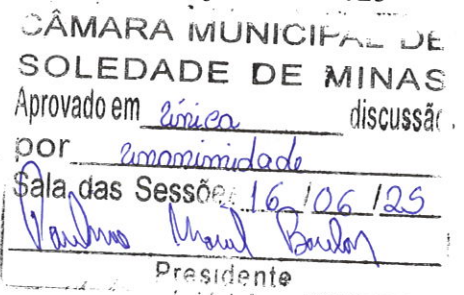 CÂMARA MUNICIPAL DE
SOLEDADE DE MINAS
Aprovado em única discussão
por unanimidade
Sala das Sessões 16/06/25
Presidente